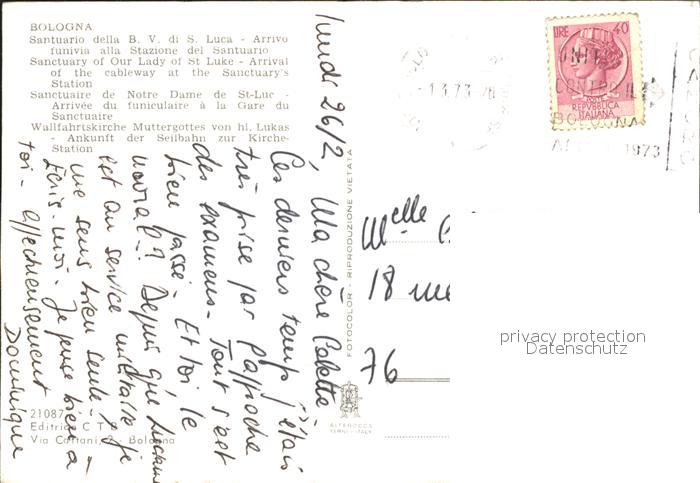 BOLOGNA
Santuario della B. V. di S. Luca - Arrivo
funivia alla Stazione del Santuario
Sanctuary of Our Lady of St Luke - Arrival
of the cableway at the Sanctuary's
Station
Sanctuaire de Notre Dame de St-Luc -
Arrivée du funiculaire à la Gare du
Sanctuaire
Wallfahrtskirche Muttergottes von hl. Lukas
- Ankunft der Seilbahn zur Kirche-
Station
lundi 26/2,
Ma chère Colette -
Ces derniers temps j'étais
très prise par l'approche
des examens. Tout s'est
bien passé - Et toi le
moral ? Depuis que
est au service militaire je
me sens bien seule -
Écris-moi - Je pense bien à
toi - affectueusement
Dominique
21087
Editrice C T
Via Cattani, 2 - Bologna
FOTOCOLOR - RIPRODUZIONE VIETATA
ALTEROCCA
TERNI - ITALY
Melle
18 rue
76
LIRE 40
POSTE
REPVBBLICA
ITALIANA
1 3 73
CONTRO IL
BOLOGNA
1973
privacy protection
Datenschutz